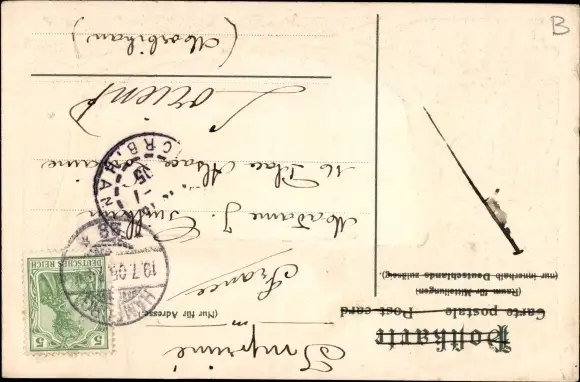 Postkarte
Carte postale Post-card
(Raum für Mitteilungen)
(nur innerhalb Deutschlands zulässig).
(Nur für Adresse)
Imprimé
France
Madame J.
16 Place Alsace Lorraine
Lorient
(Morbihan)
DEUTSCHES REICH
5
5
19.7.05
B